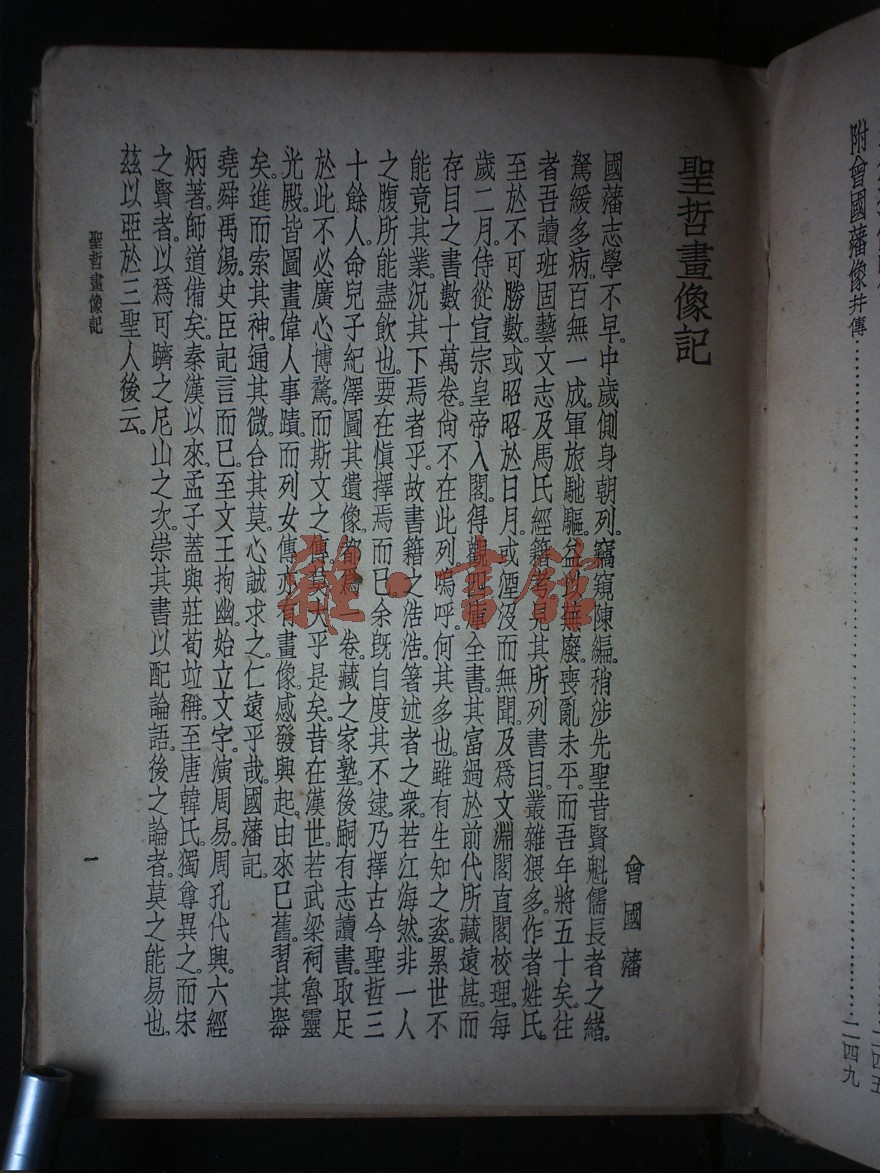 附曾國藩像幷傳……二四九
聖哲畫像記
曾國藩
國藩志學不早。中歲側身朝列。竊窺陳編。稍涉先聖昔賢魁儒長者之緒。
駑緩多病。百無一成。軍旅馳驅。益以蕪廢。喪亂未平。而吾年將五十矣。往
者吾讀班固藝文志及馬氏經籍考。見其所列書目。叢雜猥多。作者姓氏。
至於不可勝數。或昭昭於日月。或湮沒而無聞。及爲文淵閣直閣校理。每
歲二月。侍從宣宗皇帝入閣。得觀四庫全書。其富過於前代所藏遠甚。而
存目之書數十萬卷。尙不在此列。嗚呼。何其多也。雖有生知之姿。累世不
能竟其業。況其下焉者乎。故書籍之浩浩。箸述者之衆。若江海然。非一人
之腹所能盡飲也。要在愼擇焉而已。余旣自度其不逮。乃擇古今聖哲三
十餘人。命兒子紀澤圖其遺像。都爲一卷。藏之家塾。後嗣有志讀書。取足
於此。不必廣心博騖。而斯文之傳。莫大乎是矣。昔在漢世。若武梁祠魯靈
光殿。皆圖畫偉人事蹟。而列女傳亦有畫像。感發興起。由來已舊。習其器
矣。進而索其神。通其微。合其莫。心誠求之。仁遠乎哉。國藩記。
堯舜禹湯。史臣記言而已。至文王拘幽。始立文字。演周易。周孔代興。六經
炳著。師道備矣。秦漢以來。孟子蓋與莊荀竝稱。至唐韓氏。獨尊異之。而宋
之賢者。以爲可躋之尼山之次。崇其書以配論語。後之論者。莫之能易也。
茲以亞於三聖人後云。
聖哲畫像記
一
雜·書館